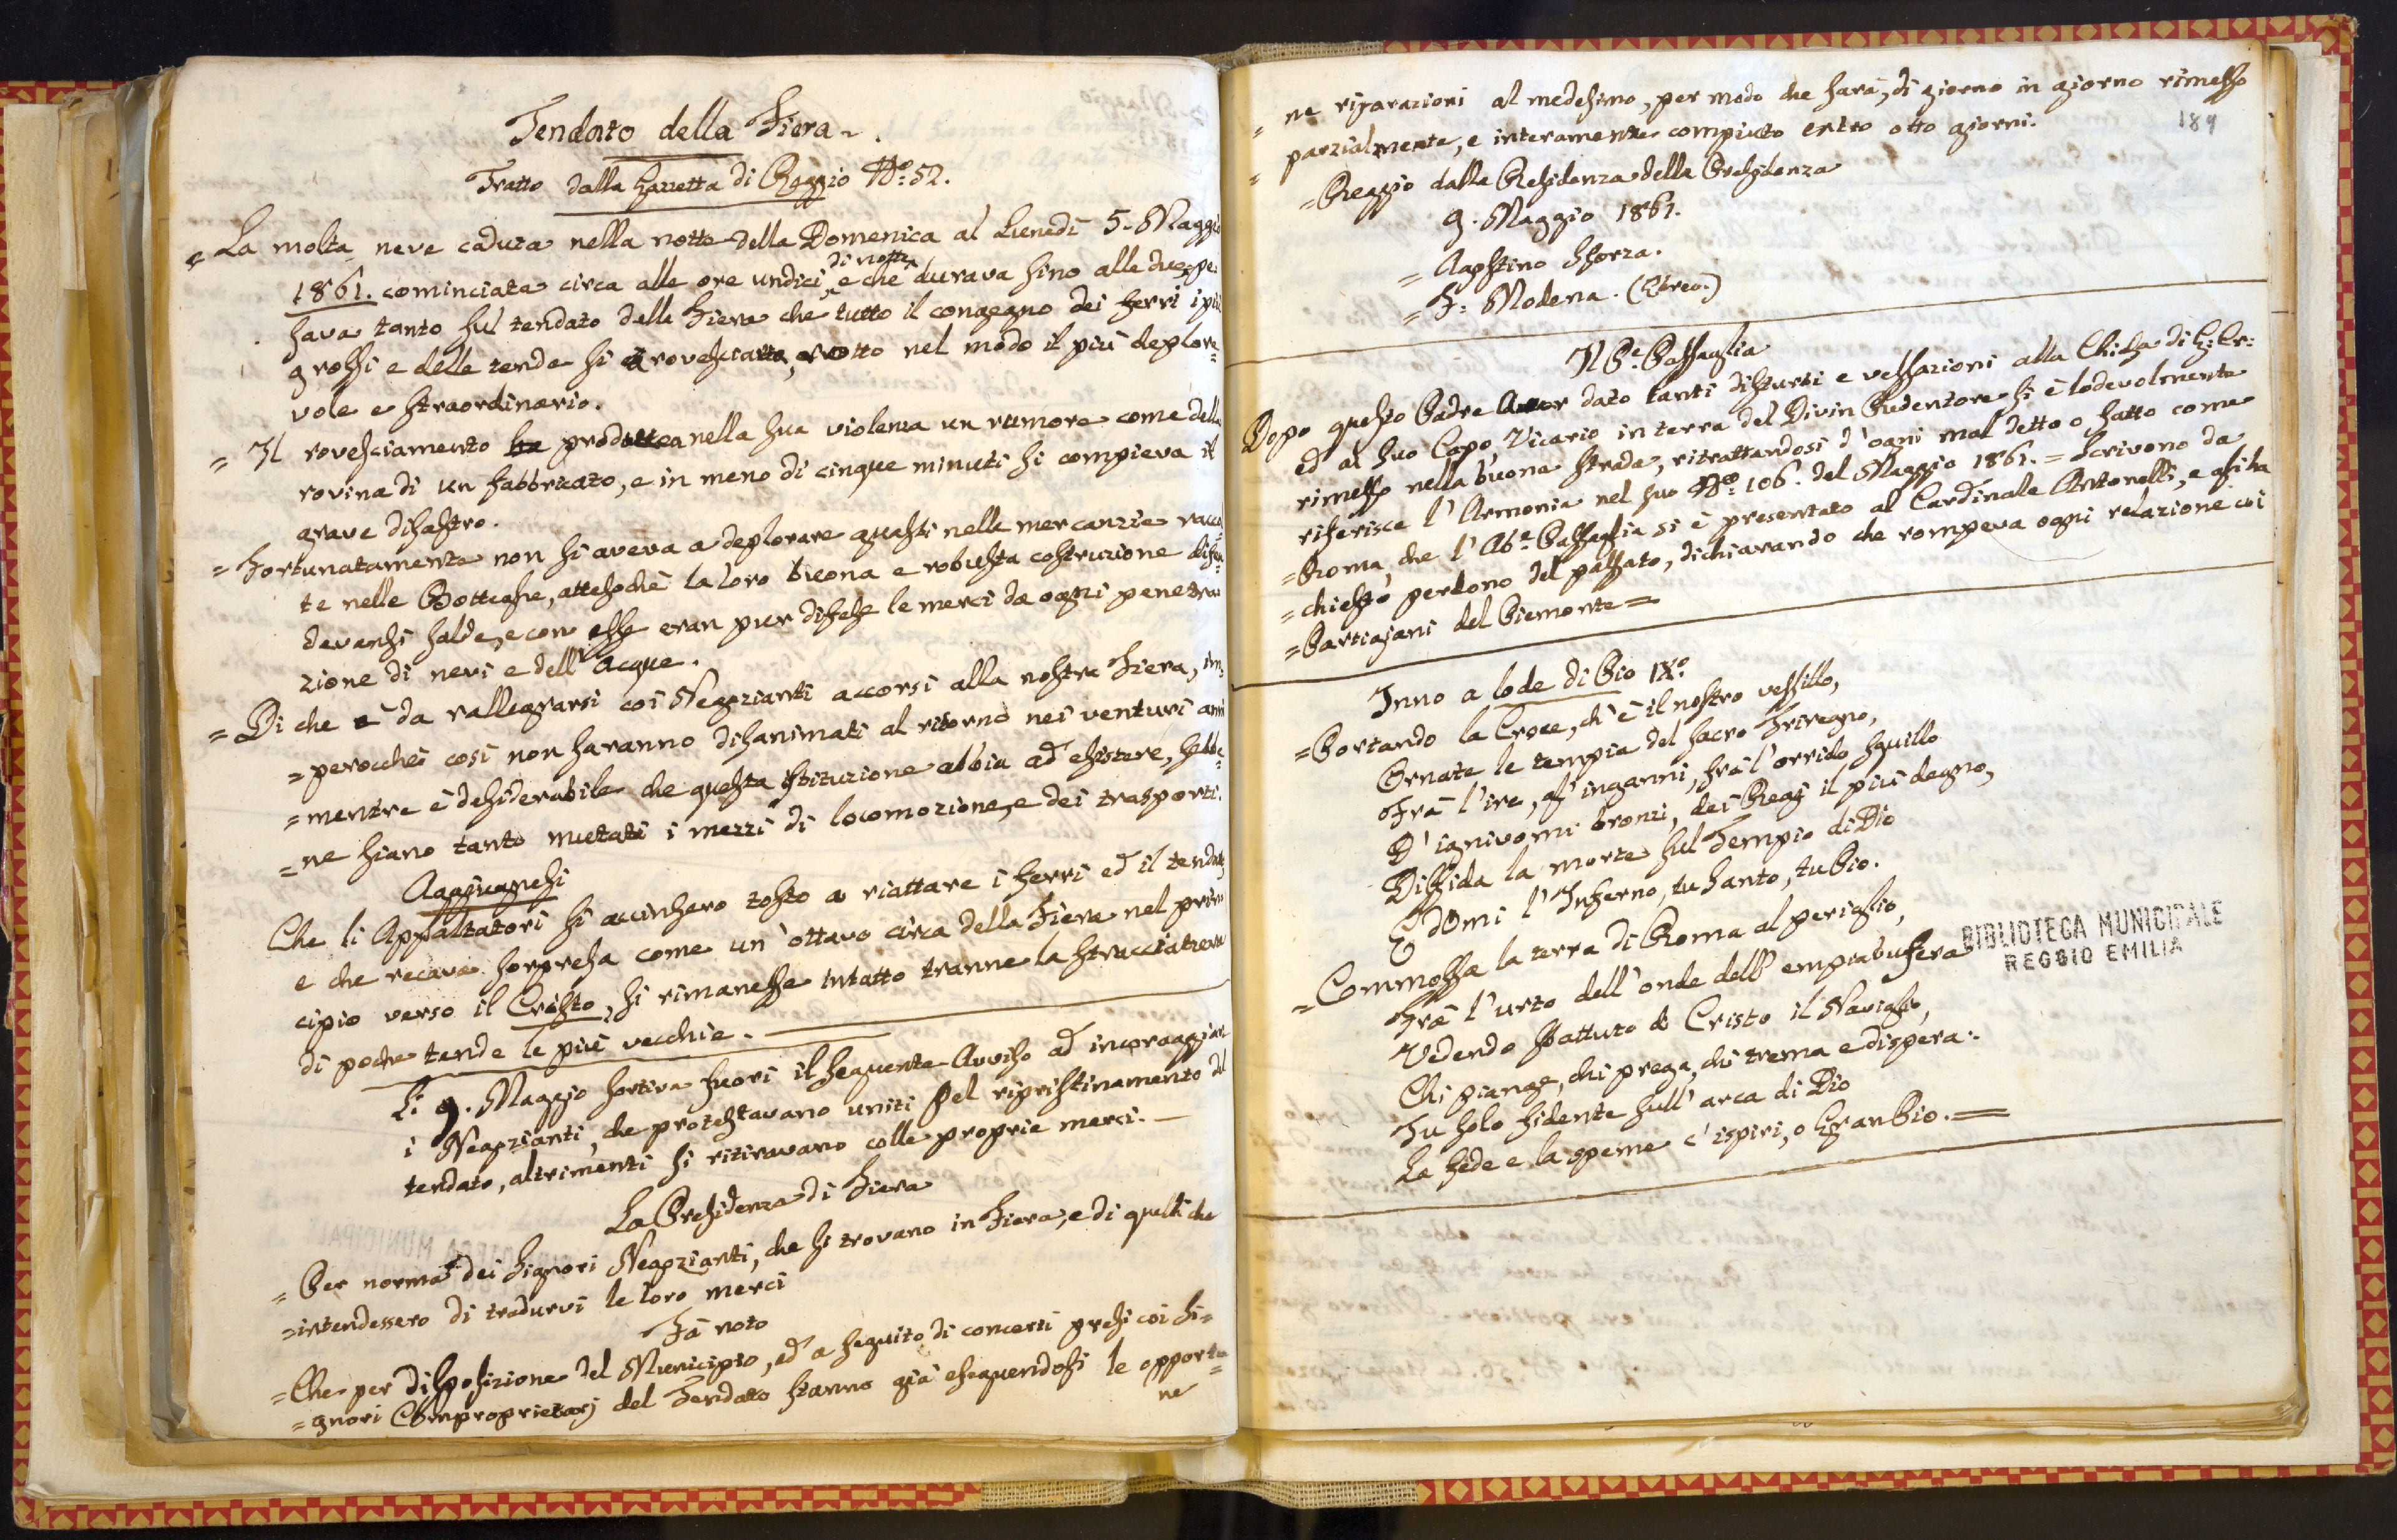 Tendato della Fiera.
Tratto dalla Gazzetta di Reggio N.o: 52.
= La molta neve caduta nella notte della Domenica al Lunedì 5. Maggio
1861. cominciata circa alle ore undici, di notte e che durava sino alle due pe:
sava tanto sul tendato della Fiera che tutto il congegno dei ferri i più
grossi e delle tende si rovesciatto, rotto nel modo il più deplore=
vole e straordinario.
= Il rovesciamento produttea nella sua violenza un rumore come della
rovina di un fabbricato, e in meno di cinque minuti si compieva il
grave disastro.
= Fortunatamente non si aveva a deplorare guasti nelle mercanzie raccol
te nelle Botteghe, attesochè la loro buona e robusta costruzione difen=
devansi salde, e con esse eran pur difese le merci da ogni penetra
zione di nevi e dell'acque.
= Di che è da rallegrarsi coi Negozianti accorsi alla nostra Fiera, im=
= perocchè così non saranno disanimati al ritorno nei venturi anni
= mentre è desiderabile che questa istituzione abbia ad esistere, sebbe=
= ne siano tanto mutati i mezzi di locomozione, e dei trasporti.
Aggiugnesi
Che li Appaltatori si accinsero tosto a riattare i ferri ed il tendato,
e che recava sorpresa come un'ottavo circa della Fiera nel prin
cipio verso il Cristo, si rimanesse intatto tranne la stracciatura
di poche tende le più vecchie.
Li 9. Maggio sortiva fuori il seguente Avviso ad incoraggiare
i Negozianti, che protestavano uniti pel ripristinamento del
tendato, altrimenti si ritiravano colle proprie merci. —
La Presidenza di Fiera
= Per norma dei Signori Negozianti, che si trovano in Fiera, e di quelli che
= intendessero di tradurvi le loro merci
Fà noto
= Che per disposizione del Municipio, ed a seguito di concerti presi coi Si=
= gnori Comproprietarj del Tendato stanno già eseguendosi le opportu=
ne
= ne riparazioni al medesimo, per modo che sarà, di giorno in giorno rimesso
= parzialmente, e interamente compiuto entro otto giorni.
189
= Reggio dalla Residenza della Presidenza
9. Maggio 1861.
= Agostino Sforza.
= F: Modena. (Ebreo.)
Il P.e Passaglia
Dopo questo Padre Aver dato tanti disturbi e vessazioni alla Chiesa di G: Cr:
ed al suo Capo, Vicario in terra del Divin Redentore si è lodevolmente
rimesso nella buona strada, ritrattandosi d'ogni mal detto o fatto come
riferisce l'Armonia nel suo N.o: 106. del Maggio 1861. = Scrivono da
= Roma, che l'Ab.e Passaglia si è presentato al Cardinale Antonelli, e gli ha
= chiesto perdono del passato, dichiarando che rompeva ogni relazione coi
= Partigiani del Piemonte =
Inno a lode di Pio IX.o
= Portando la Croce, ch'è il nostro vessillo,
Ornate le tempia del sacro Triregno,
Frà l'ire, gl'inganni, frà l'orrido squillo
D'ignivomi bronzi, dei Regi il più degno,
Disfida la morte sul Tempio di Dio
E domi l'Inferno, tu Santo, tu Pio.
= Commossa la terra di Roma al periglio,
Frà l'urto dell'onde dell'empia bufera
Vedendo sbattuto di Cristo il Naviglio,
Chi piange, chi prega, chi trema e dispera:
Tu solo fidente sull'arca di Dio
La fede e la speme c'ispiri, o Gran Pio. =
BIBLIOTECA MUNICIPALE
REGGIO EMILIA